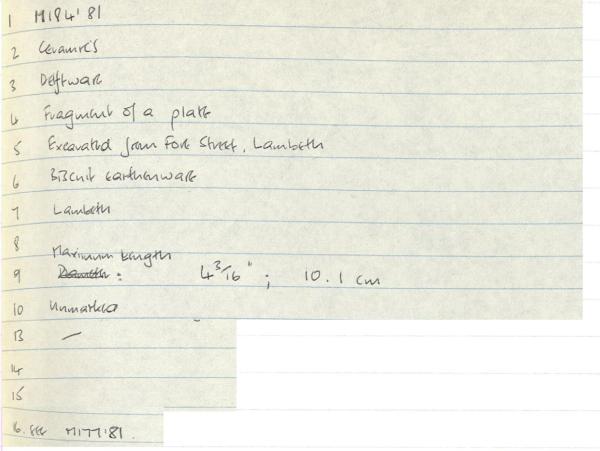 1 M184'81
2 Ceramics
3 Delftware
4 Fragment of a plate
5 Excavated from Fore Street, Lambeth
6 Biscuit earthenware
7 Lambeth
8
Maximum Length
9 Diameter : 4 3/16" ; 10.1 cm
10 Unmarked
13 —
14
15
16. See M177'81.